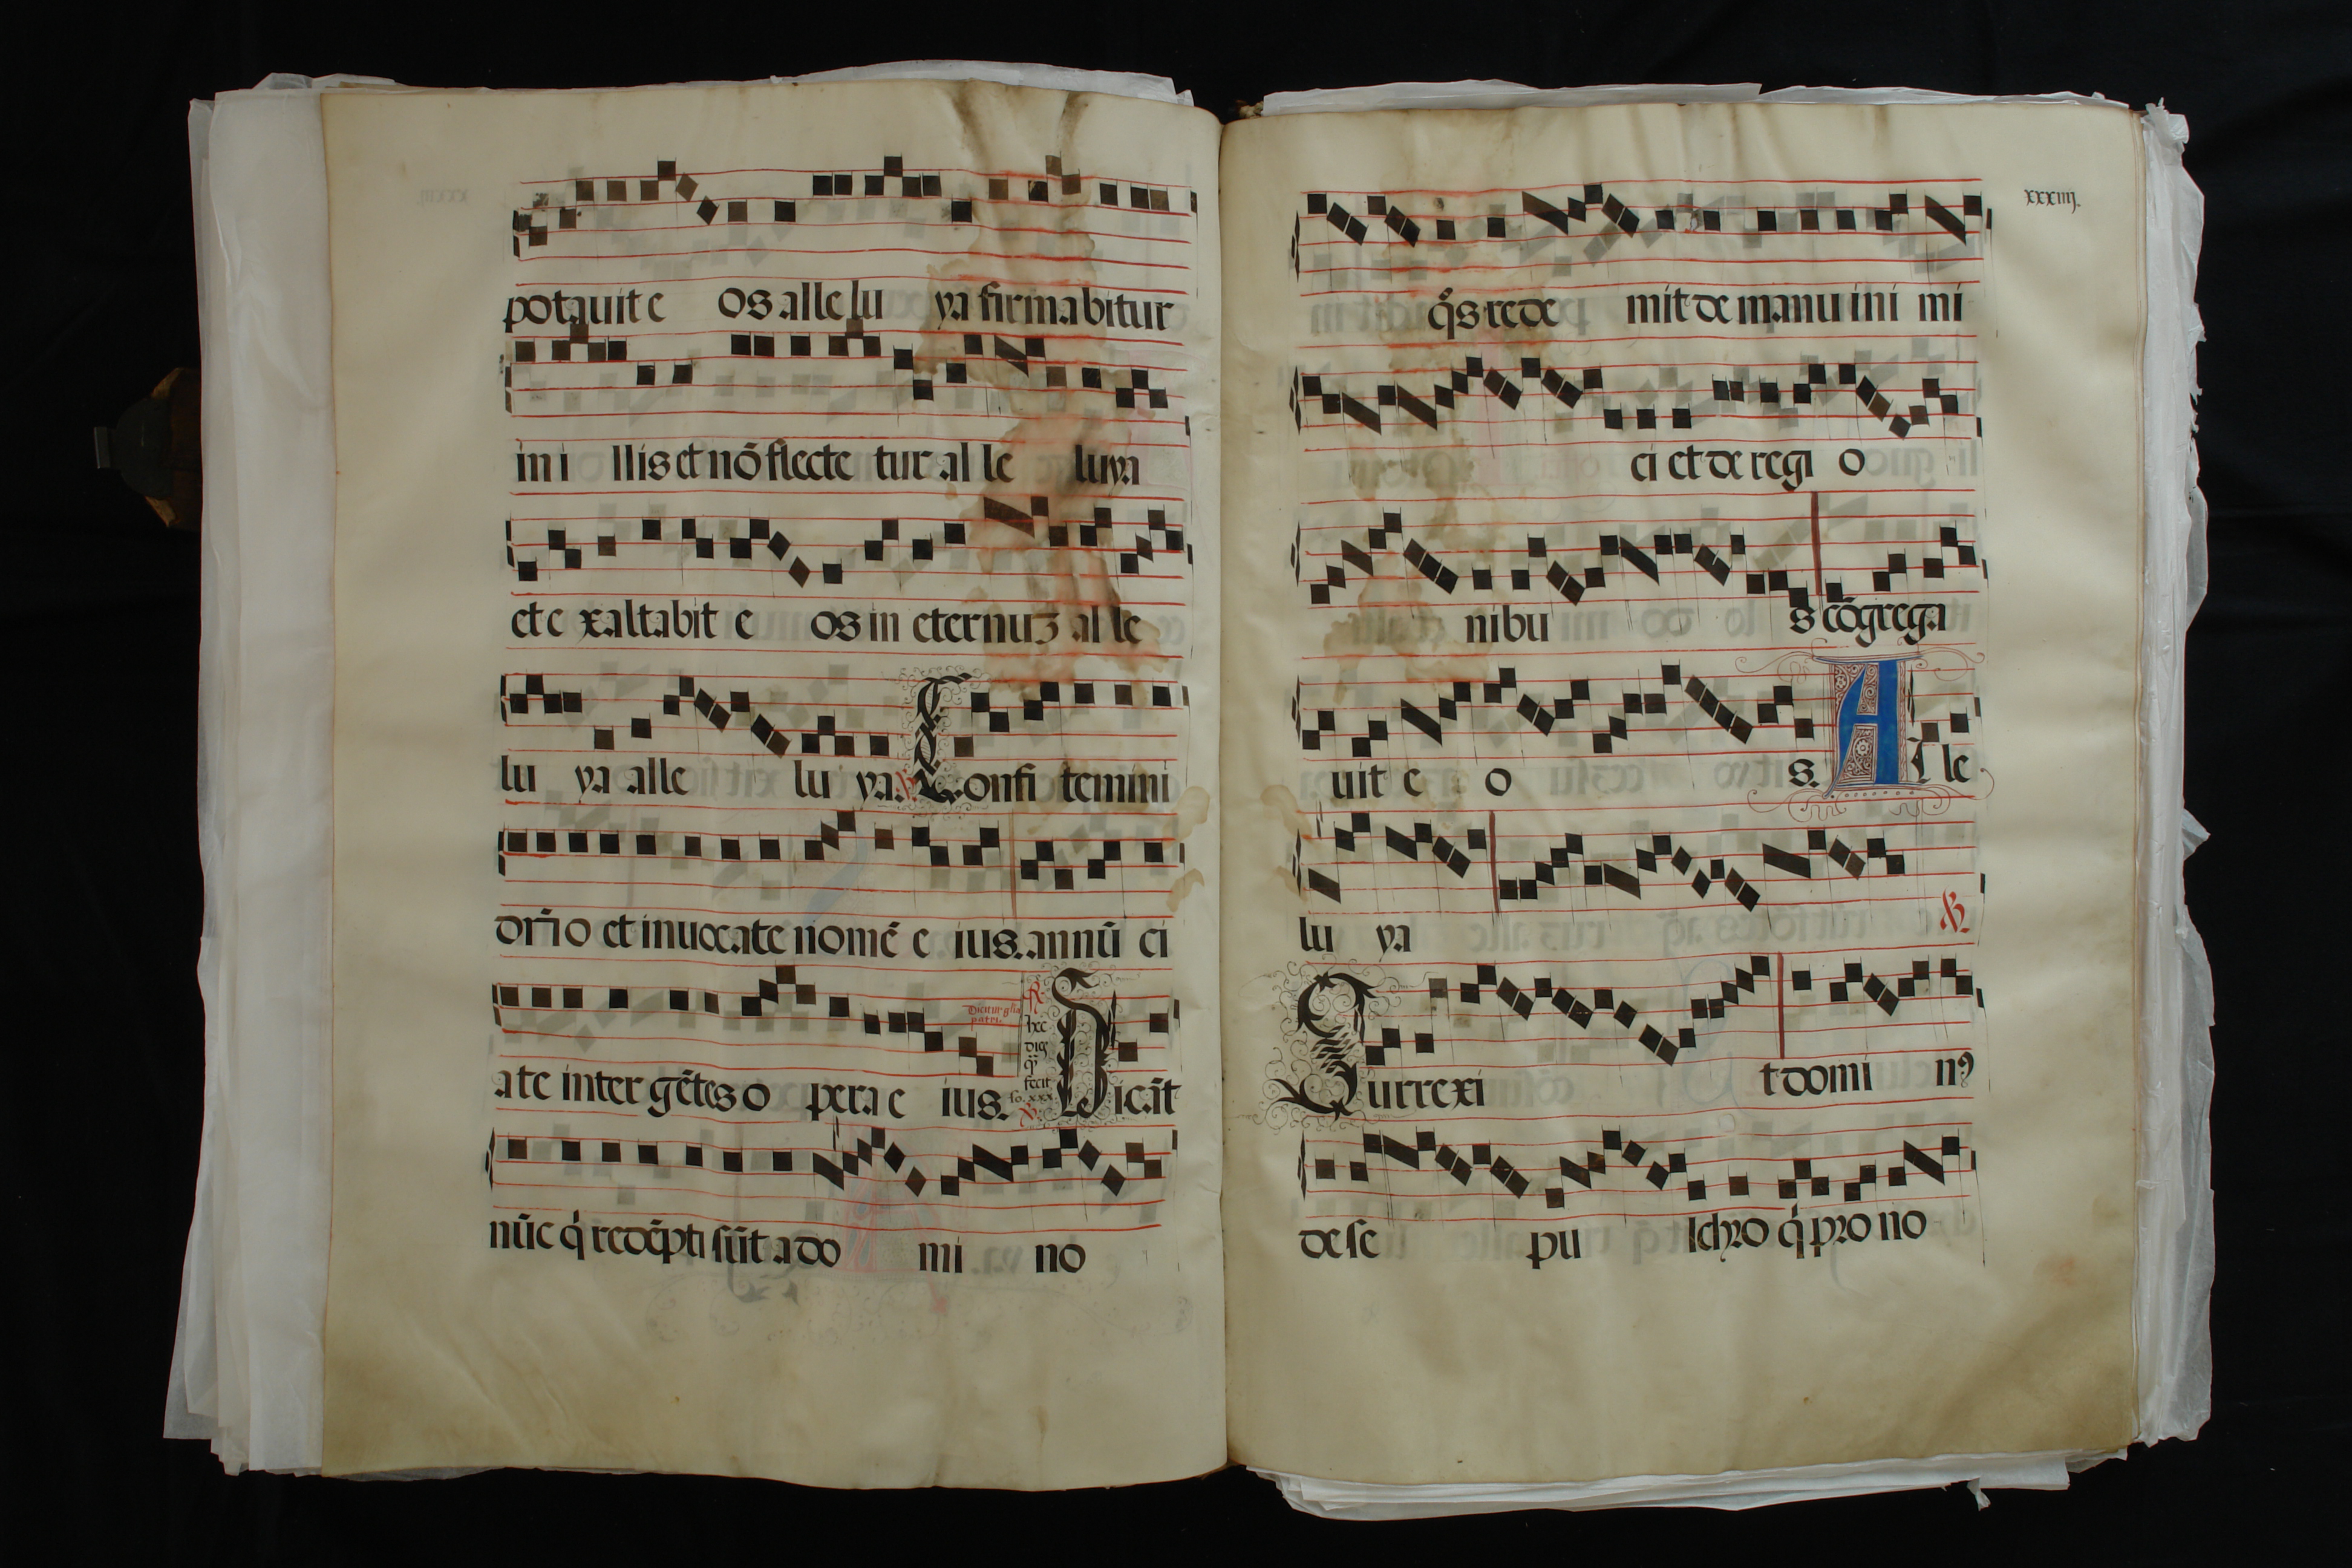 potauit e os alle lu ya firmabitur
in i llis et nõ flecte tur al le luya
et e xaltabit e os in eternuʒ al le
lu ya alle lu ya. ℣. Confi temini
dñio et inuocate nomē e ius. annū ci
ate inter gētes o pera e ius.
Dicitur gl̄ia
patri.
℟.
hec
dies
q̄
fecit
fo. xxx
℣.
Dicāt
nūc q̇ redēpti sūt a do mi no
xxxiiij.
q̊s rede mit de manu ini mi
ci et de regi o
nibu s cōgrega
uit e o s. Alle
lu ya ℣.
Surrexi t domi nꝰ
de se pu lchro q̇ pro no